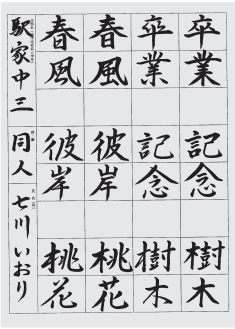 卒業
記念
樹木
卒業
記念
樹木
春風
彼岸
桃花
春風
彼岸
桃花
駅家中三
同人
七川いおり